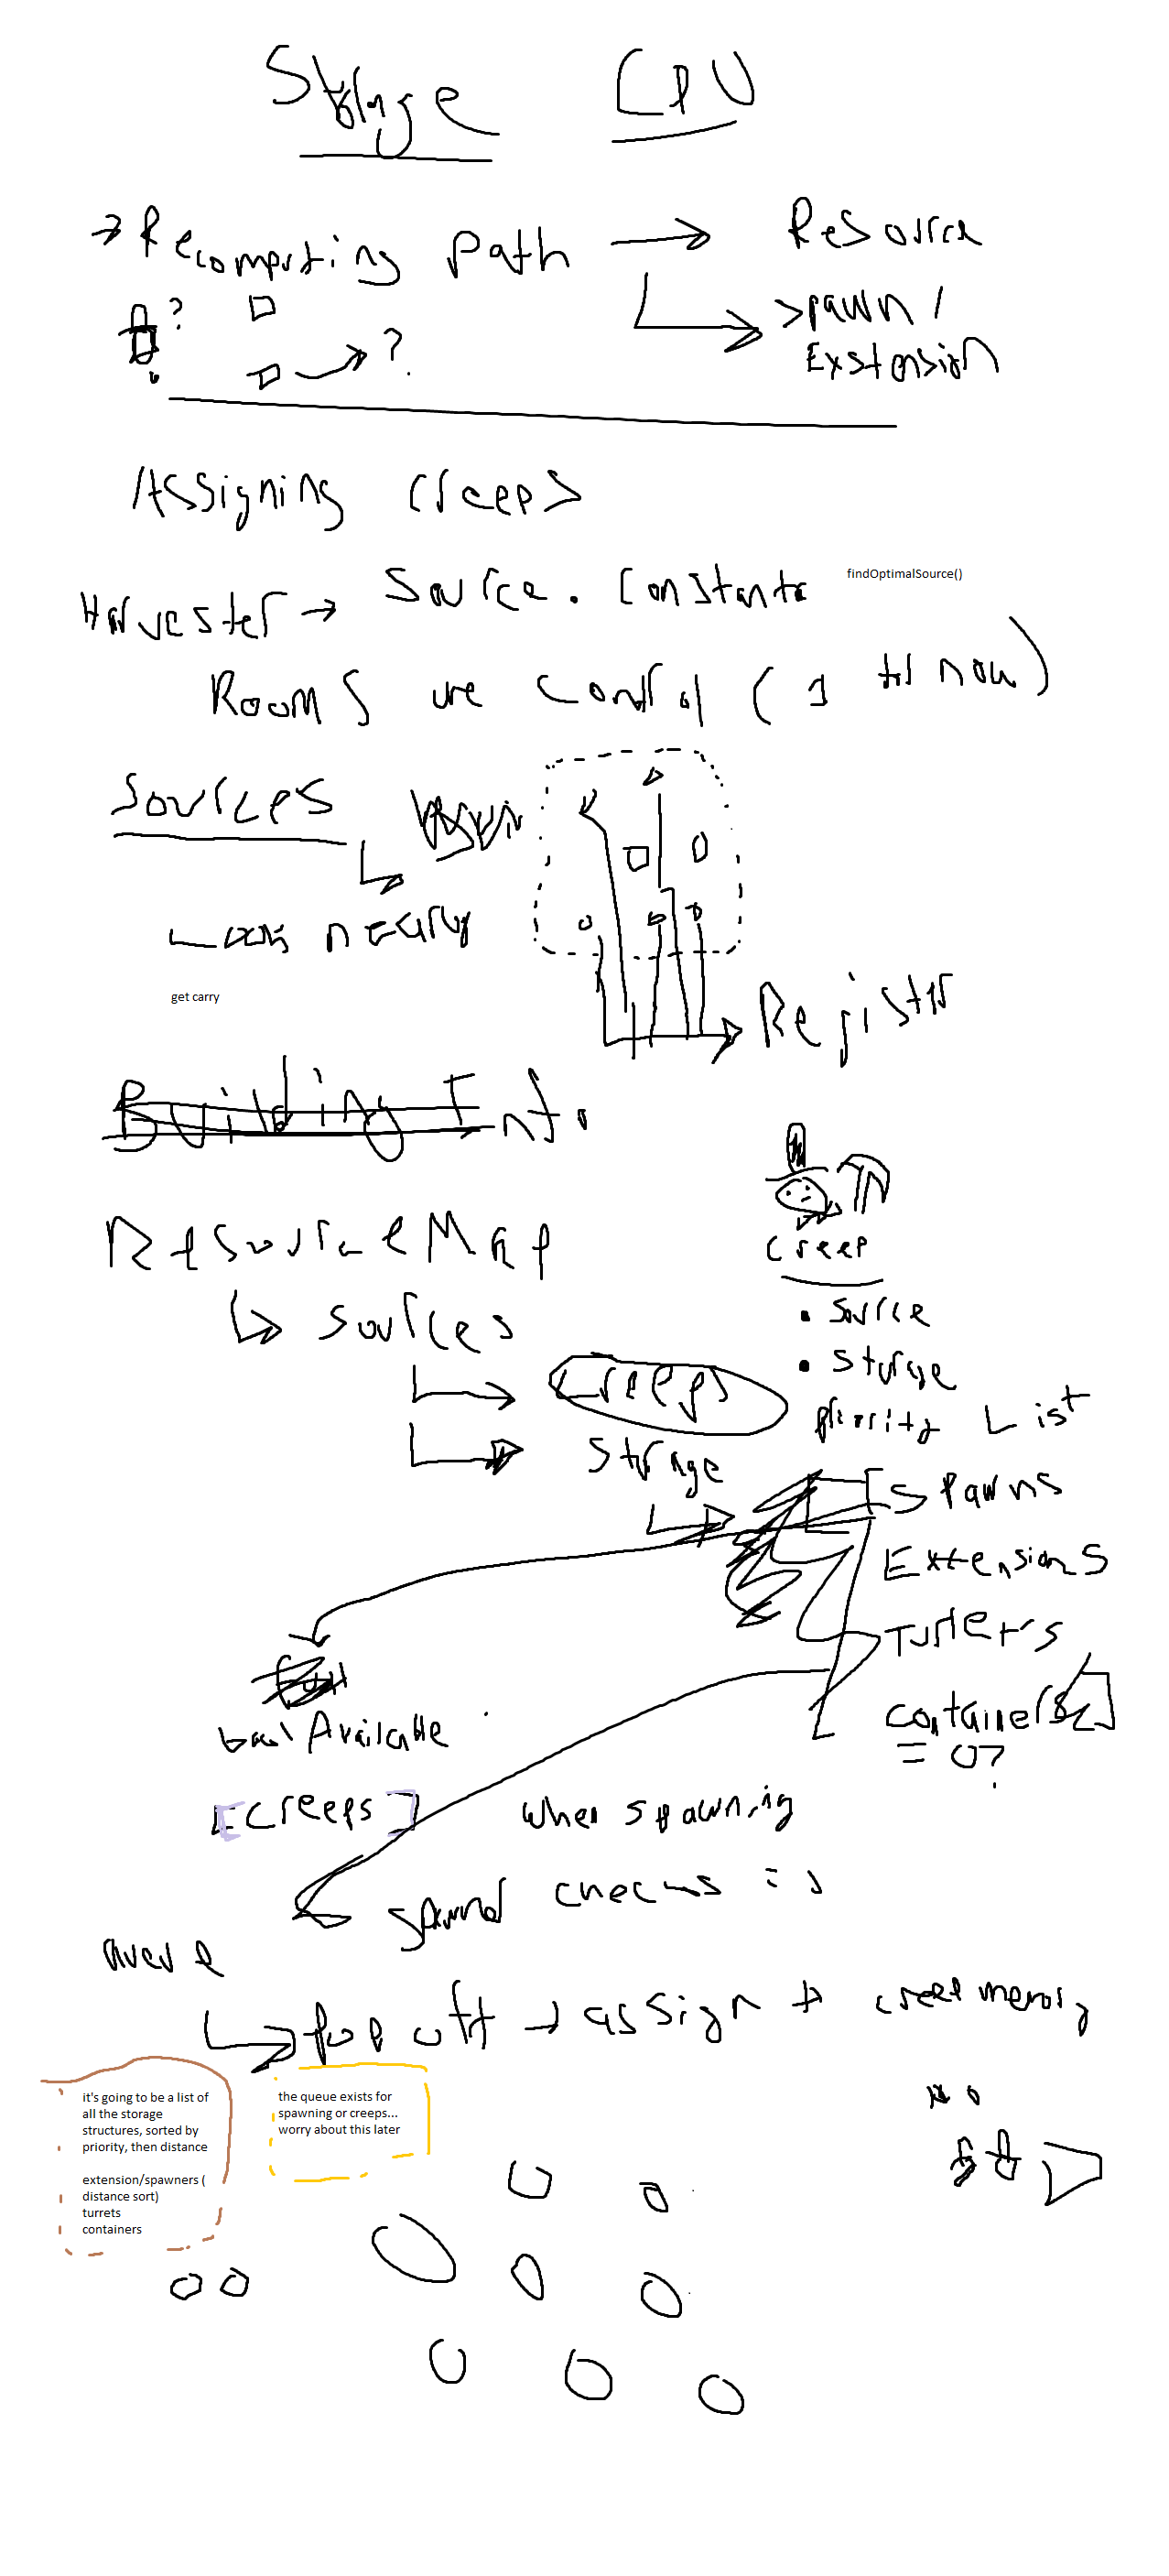 Storage CPU
→ Recomputing path → Resource
? Spawn /
Exstension
?
Assigning creeps
Harvester → Source. Constants findOptimalSource()
Rooms we control (1 til now)
Sources
Look nearby
get carry
Register
Building Info
ResourceMap
creep
sources
• source
creeps
• storage
priority List
storage
[Spawns
Extensions
Turrets
containers]
= 0?
bool Available
[creeps] when spawning
spawned checks
queue
pop off → assign to creep memory
it's going to be a list of
all the storage
structures, sorted by
priority, then distance
extension/spawners (
distance sort)
turrets
containers
the queue exists for
spawning or creeps...
worry about this later